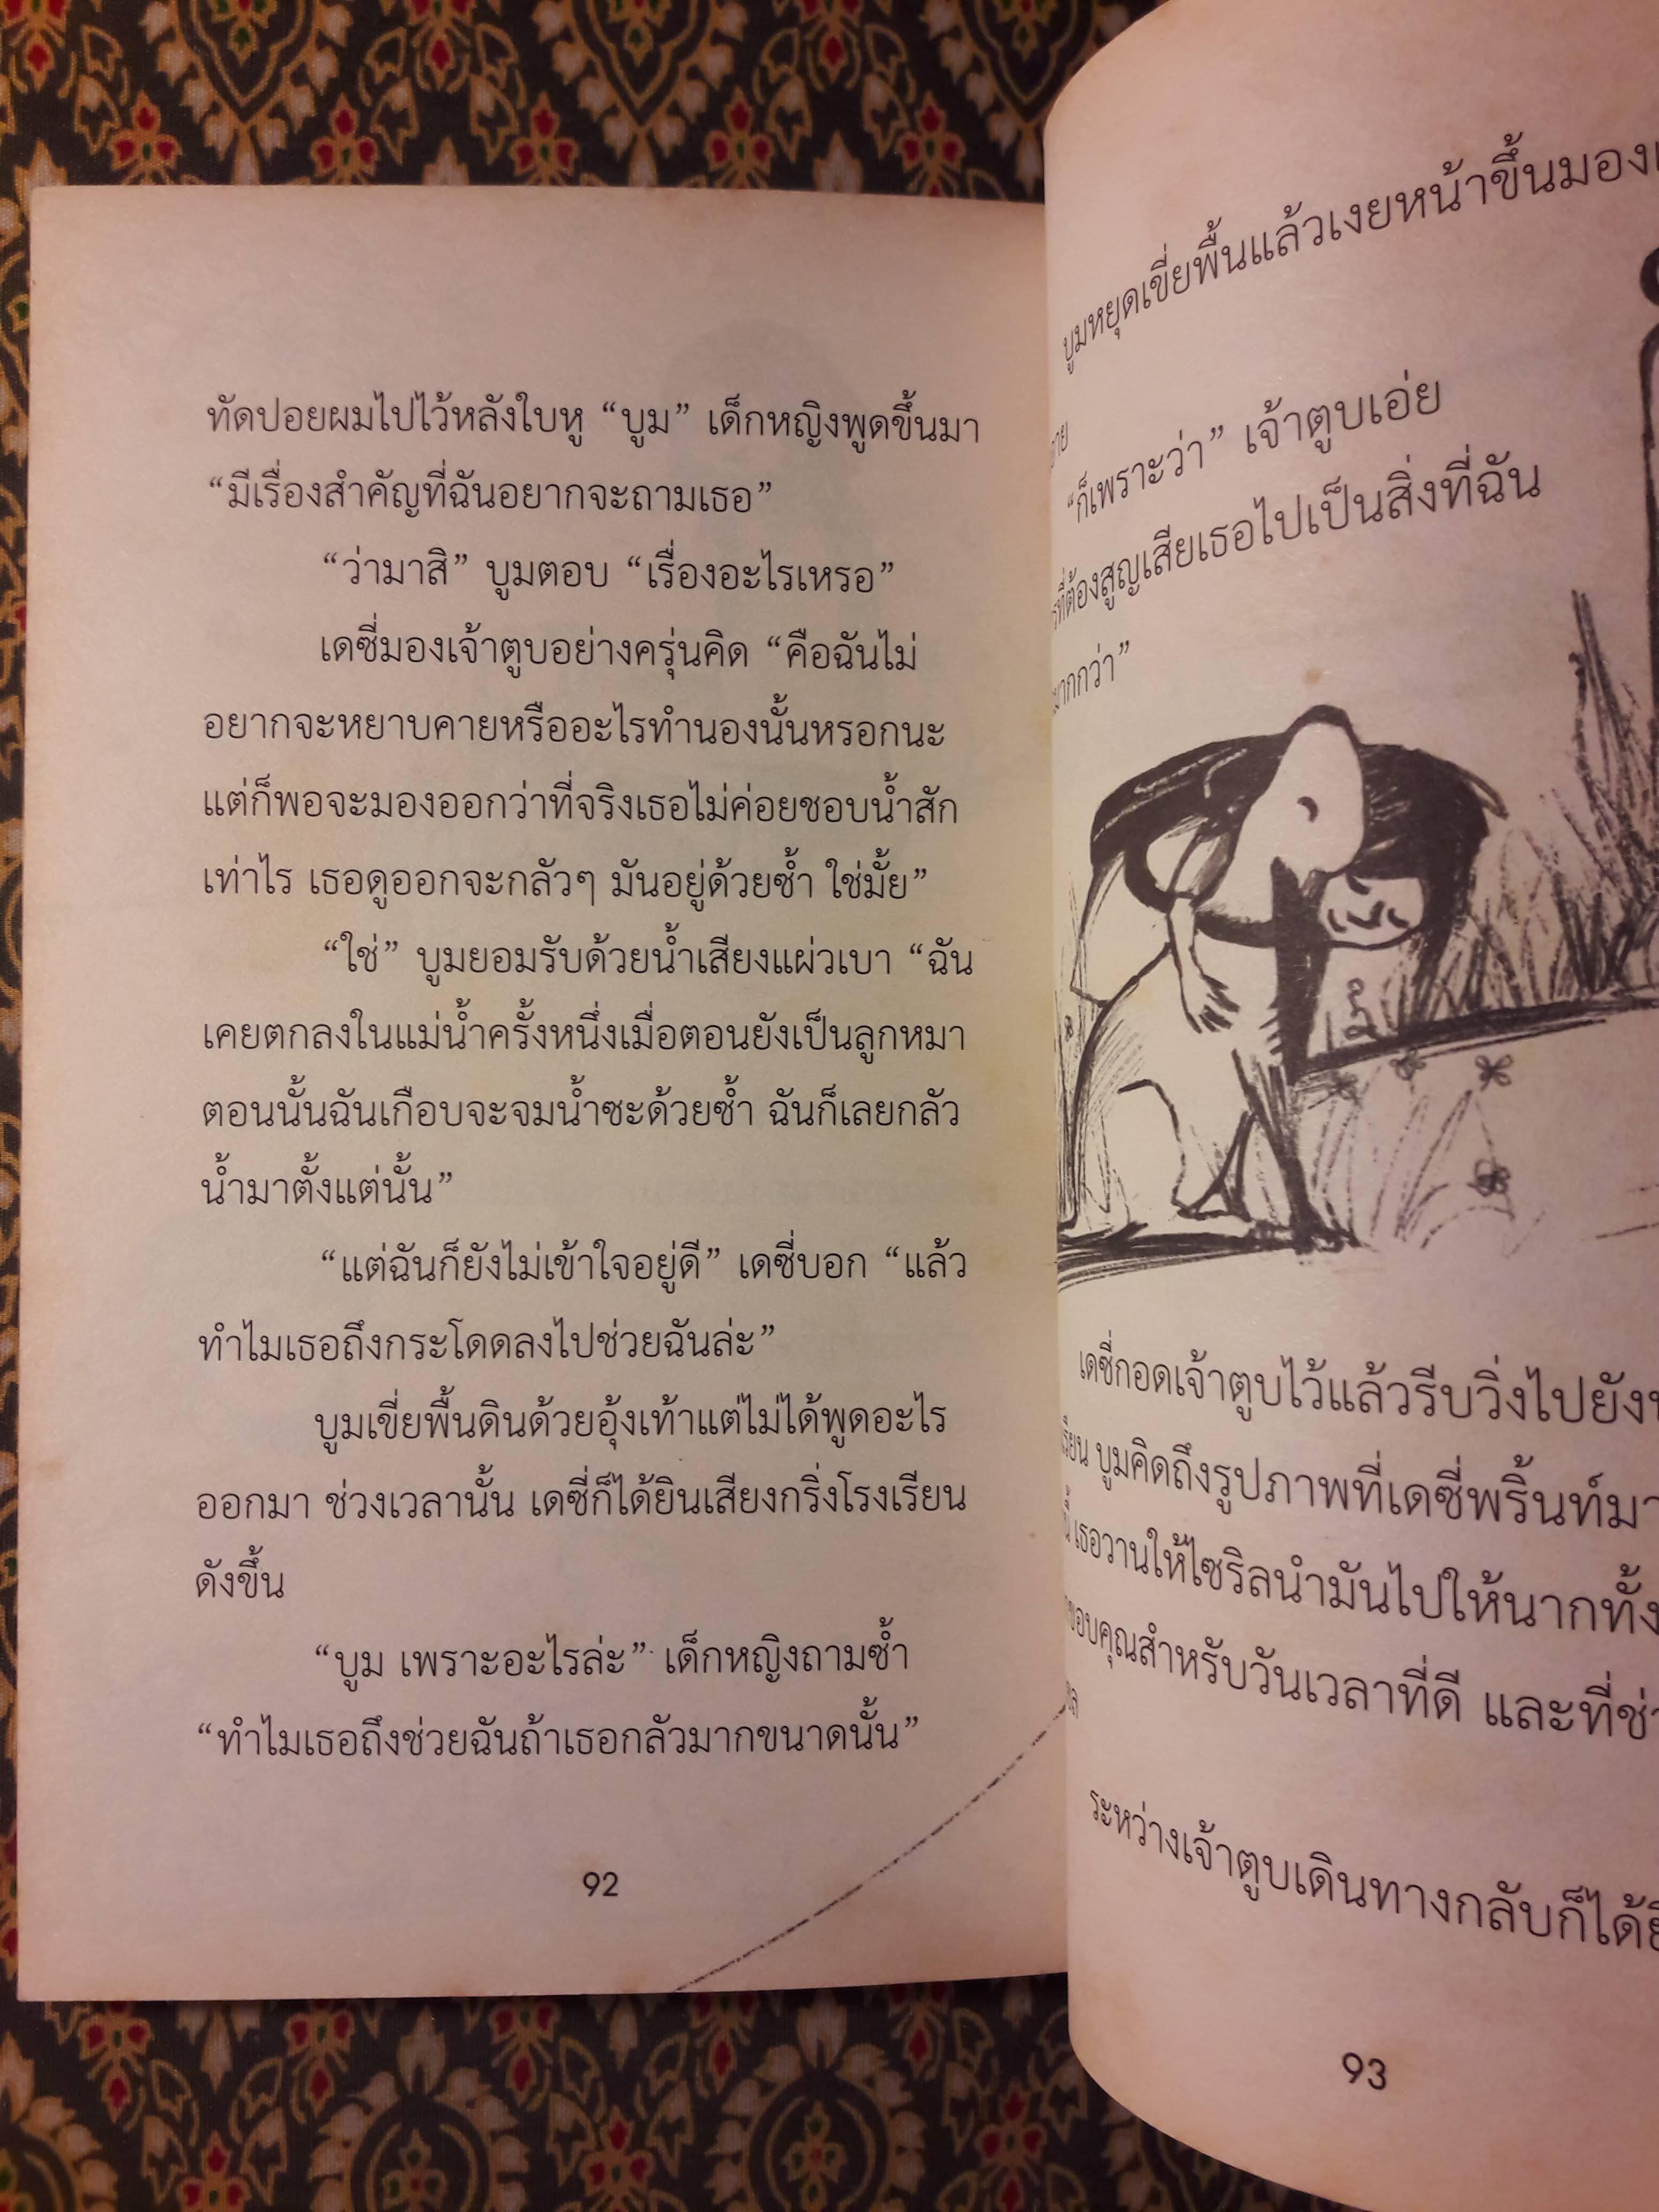 ทัดปอยผมไปไว้หลังใบหู “บูม” เด็กหญิงพูดขึ้นมา
“มีเรื่องสำคัญที่ฉันอยากจะถามเธอ”
“ว่ามาสิ” บูมตอบ “เรื่องอะไรเหรอ”
เดซี่มองเจ้าตูบอย่างครุ่นคิด “คือฉันไม่
อยากจะหยาบคายหรืออะไรทำนองนั้นหรอกนะ
แต่ก็พอจะมองออกว่าที่จริงเธอไม่ค่อยชอบน้ำสัก
เท่าไร เธอดูออกจะกลัวๆ มันอยู่ด้วยซ้ำ ใช่มั้ย”
“ใช่” บูมยอมรับด้วยน้ำเสียงแผ่วเบา “ฉัน
เคยตกลงในแม่น้ำครั้งหนึ่งเมื่อตอนยังเป็นลูกหมา
ตอนนั้นฉันเกือบจะจมน้ำซะด้วยซ้ำ ฉันก็เลยกลัว
น้ำมาตั้งแต่นั้น”
“แต่ฉันก็ยังไม่เข้าใจอยู่ดี” เดซี่บอก “แล้ว
ทำไมเธอถึงกระโดดลงไปช่วยฉันล่ะ”
บูมเขี่ยพื้นดินด้วยอุ้งเท้าแต่ไม่ได้พูดอะไร
ออกมา ช่วงเวลานั้น เดซี่ก็ได้ยินเสียงกริ่งโรงเรียน
ดังขึ้น
“บูม เพราะอะไรล่ะ” เด็กหญิงถามซ้ำ
“ทำไมเธอถึงช่วยฉันถ้าเธอกลัวมากขนาดนั้น”
92
บูมหยุดเขี่ยพื้นแล้วเงยหน้าขึ้นมอง
“ก็เพราะว่า” เจ้าตูบเอ่ย
ที่ต้องสูญเสียเธอไปเป็นสิ่งที่ฉัน
มากกว่า”
เดซี่กอดเจ้าตูบไว้แล้วรีบวิ่งไปยัง
บูมคิดถึงรูปภาพที่เดซี่พริ้นท์มา
เธอวานให้ไซริลนำมันไปให้นากทั้ง
ขอบคุณสำหรับวันเวลาที่ดี และที่ช่
ระหว่างเจ้าตูบเดินทางกลับก็ได้
93